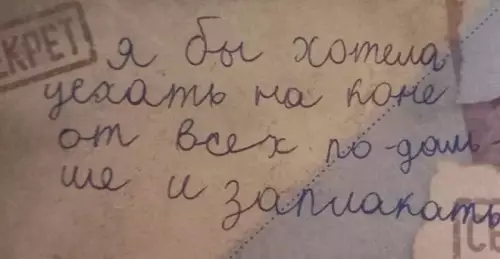 СЕКРЕТ
я бы хотела
уехать на коне
от всех по-даль-
ше и заплакать
СЕ